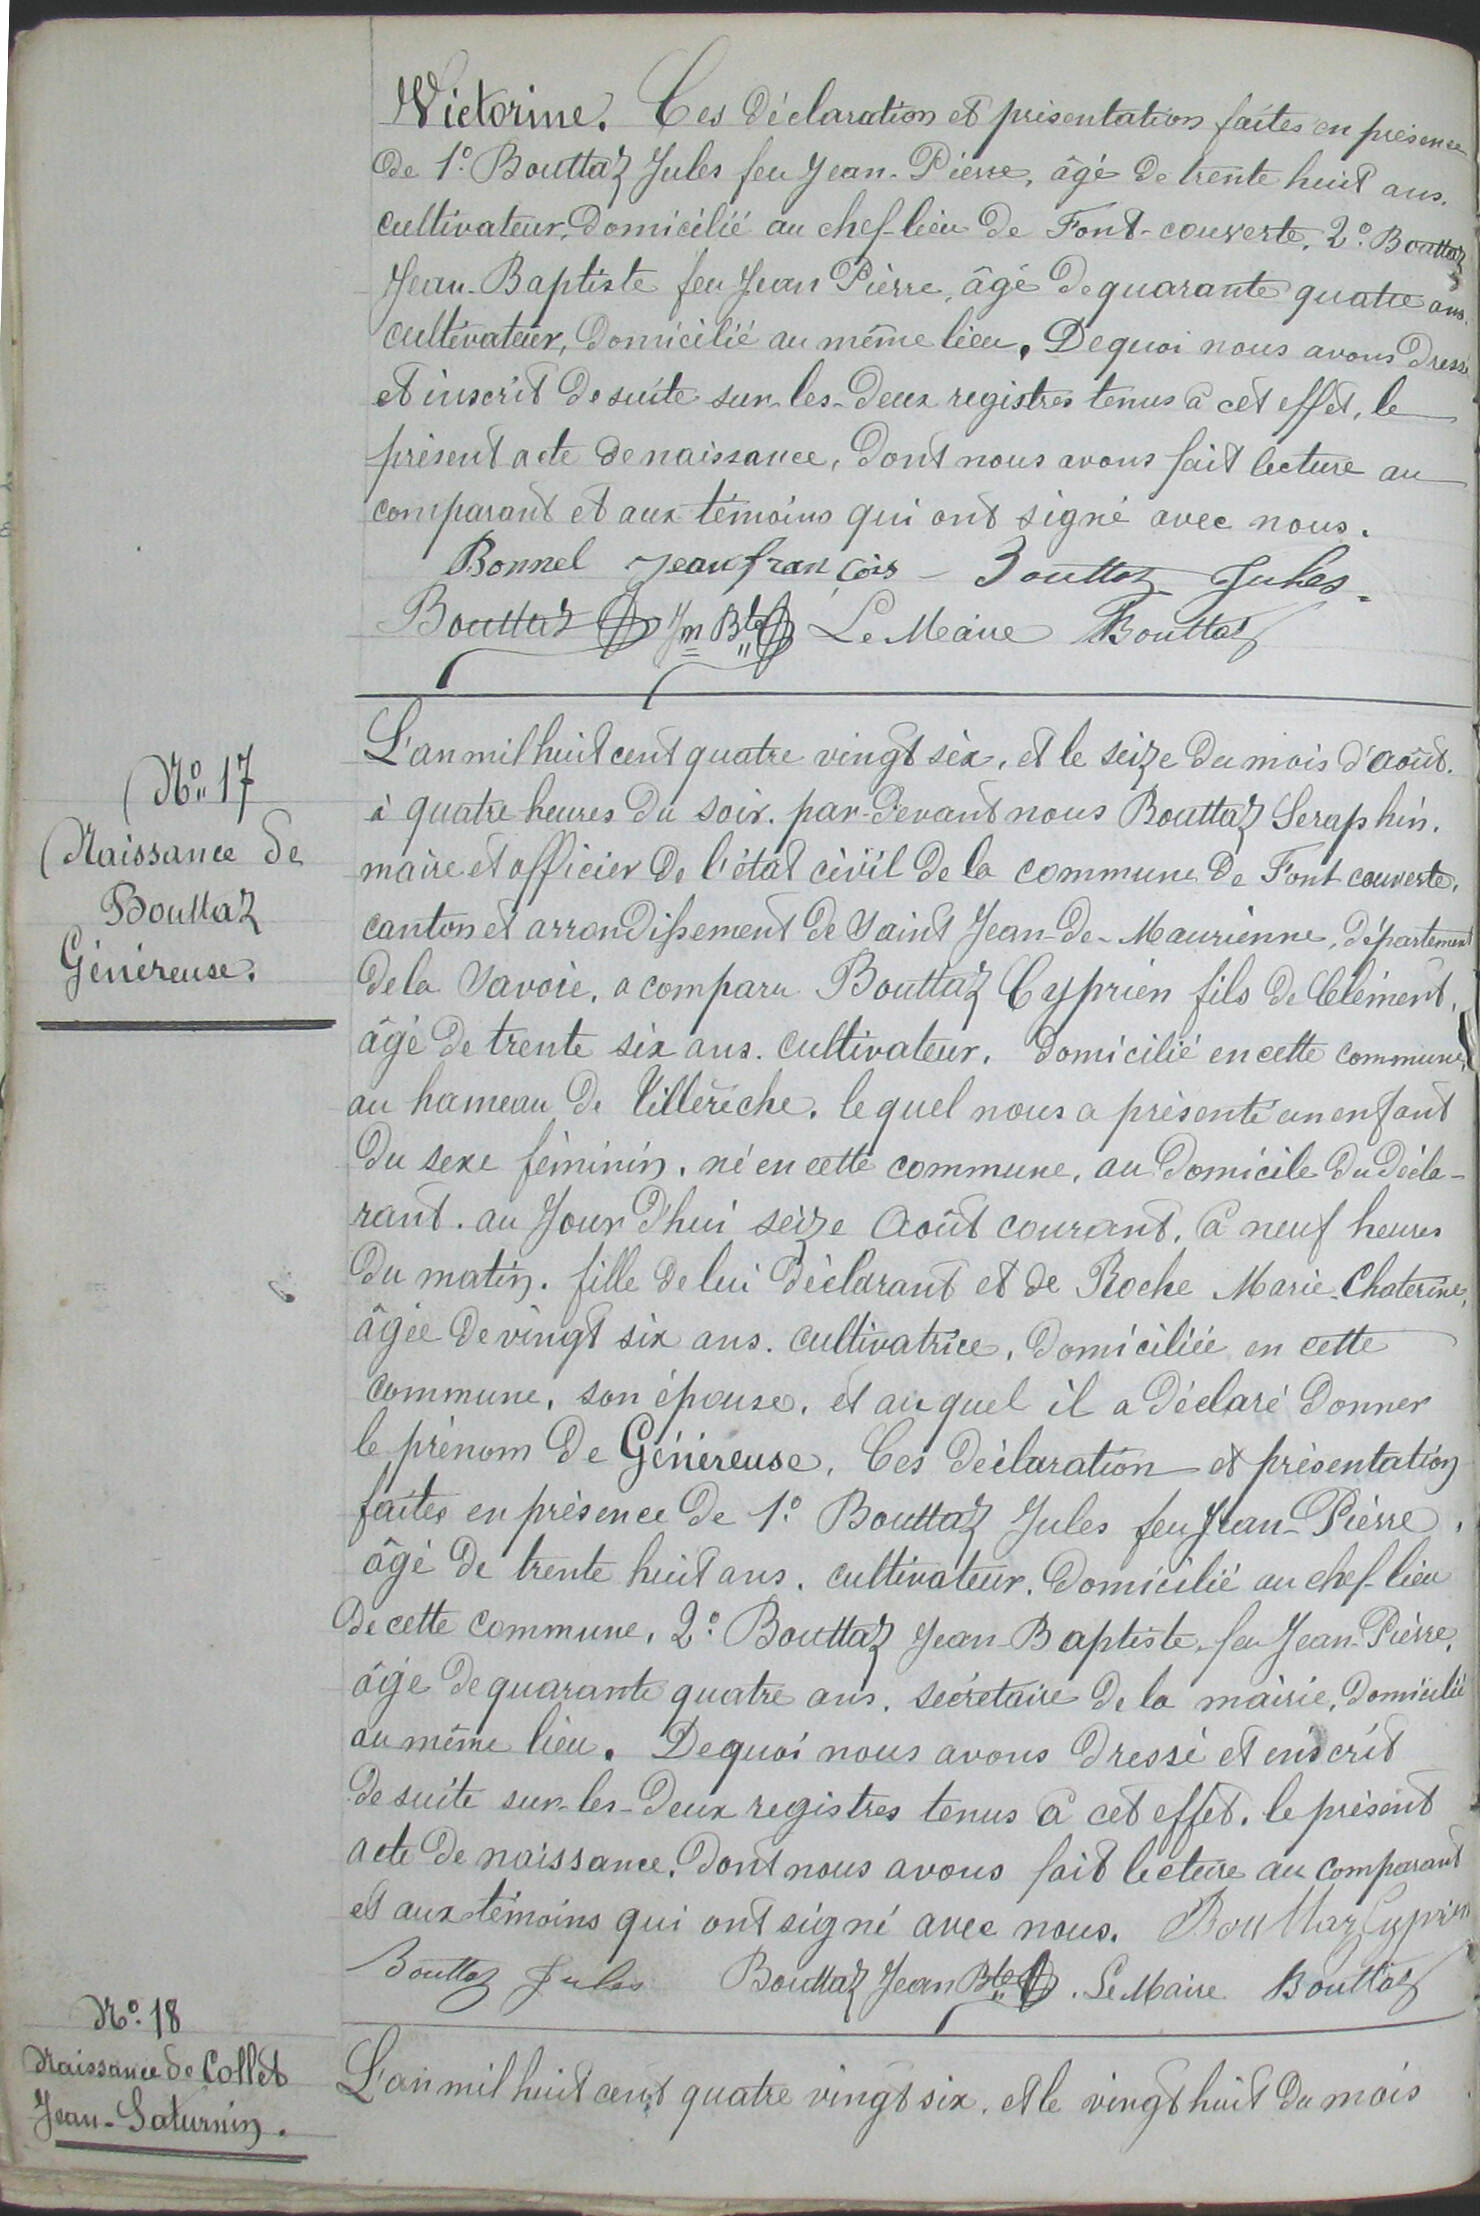 Victorine. Ces déclaration et présentation faites en présence
de 1º Bouttaz Jules feu Jean-Pierre, âgé de trente huit ans.
cultivateur, domicilié au chef-lieu de Font-couverte, 2º Bouttaz
Jean-Baptiste feu Jean Pierre, âgé de quarante quatre ans.
cultivateur, domicilié au même lieu. De quoi nous avons dressé
et inscrit de suite sur les deux registres tenus à cet effet, le
présent acte de naissance, dont nous avons fait lecture au
comparant et aux témoins qui ont signé avec nous.
Bonnel Jean françois - Bouttaz Jules.
Bouttaz Jn Bte Le Maire Bouttaz
Nº 17
Naissance de
Bouttaz
Généreuse.
L'an mil huit cent quatre vingt six, et le seize du mois d'août.
à quatre heures du soir. par-devant nous Bouttaz Seraphin.
maire et officier de l'état civil de la commune de Font couverte,
canton et arrondissement de Saint Jean-de-Maurienne, département
de la Savoie, a comparu Bouttaz Cyprien fils de Clément,
âgé de trente six ans. cultivateur. domicilié en cette commune,
au hameau de Villerèche. lequel nous a présenté un enfant
du sexe féminin. né en cette commune, au domicile du décla-
rant. au jour d'hui seize Août courant, à neuf heures
du matin. fille de lui déclarant et de Roche Marie-Chaterine,
âgée de vingt six ans. cultivatrice, domiciliée en cette
commune, son épouse, et auquel il a déclaré donner
le prénom de Généreuse. Ces déclaration et présentation
faites en présence de 1º Bouttaz Jules feu Jean-Pierre,
âgé de trente huit ans. cultivateur. domicilié au chef-lieu
de cette commune, 2º Bouttaz Jean-Baptiste feu Jean-Pierre,
âgé de quarante quatre ans. secrétaire de la mairie, domicilié
au même lieu. De quoi nous avons dressé et inscrit
de suite sur-les-deux registres tenus à cet effet. le présent
acte de naissance. dont nous avons fait lecture au comparant
et aux témoins qui ont signé avec nous. Bouttaz Cyprien
Bouttaz Jules Bouttaz Jean Bte. Le Maire Bouttaz
Nº 18
Naissance de Collet
Jean-Saturnin.
L'an mil huit cent quatre vingt six. et le vingt huit du mois